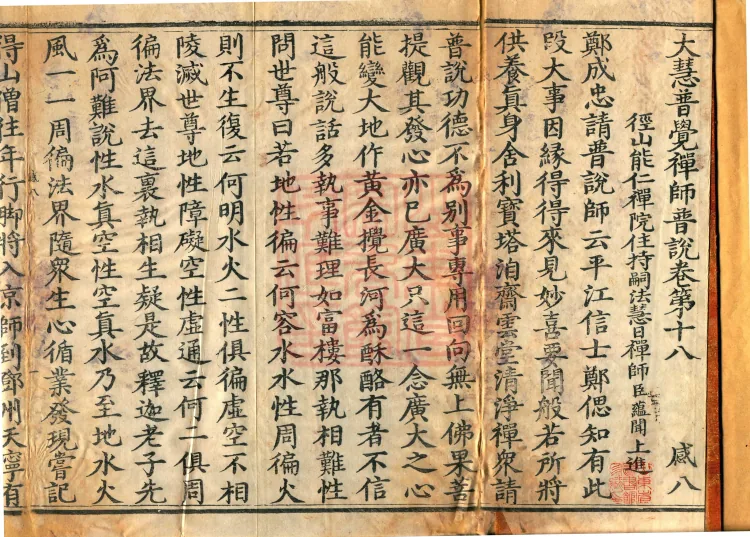 大慧普覺禪師普說卷第十八 感八
徑山能仁禪院住持嗣法慧日禪師臣蘊聞上進
鄭成忠請普說師云平江信士鄭偲知有此
段大事因緣得得來見妙喜要聞般若所將
供養眞身舍利寶塔洎齋雲堂清淨禪衆請
普說功德不爲別事專用回向無上佛果菩
提觀其發心亦已廣大只這一念廣大之心
能變大地作黃金攪長河爲酥酪有者不信
這般說話多執事難理如富樓那執相難性
問世尊曰若地性徧云何容水水性周徧火
則不生復云何明水火二性俱徧虛空不相
陵滅世尊地性障礙空性虛通云何二俱周
徧法界去這裏執相生疑是故釋迦老子先
爲阿難說性水眞空性空眞水乃至地水火
風一一周徧法界隨衆生心循業發現嘗記
得山僧往年行脚將入京師到鄧州天寧有